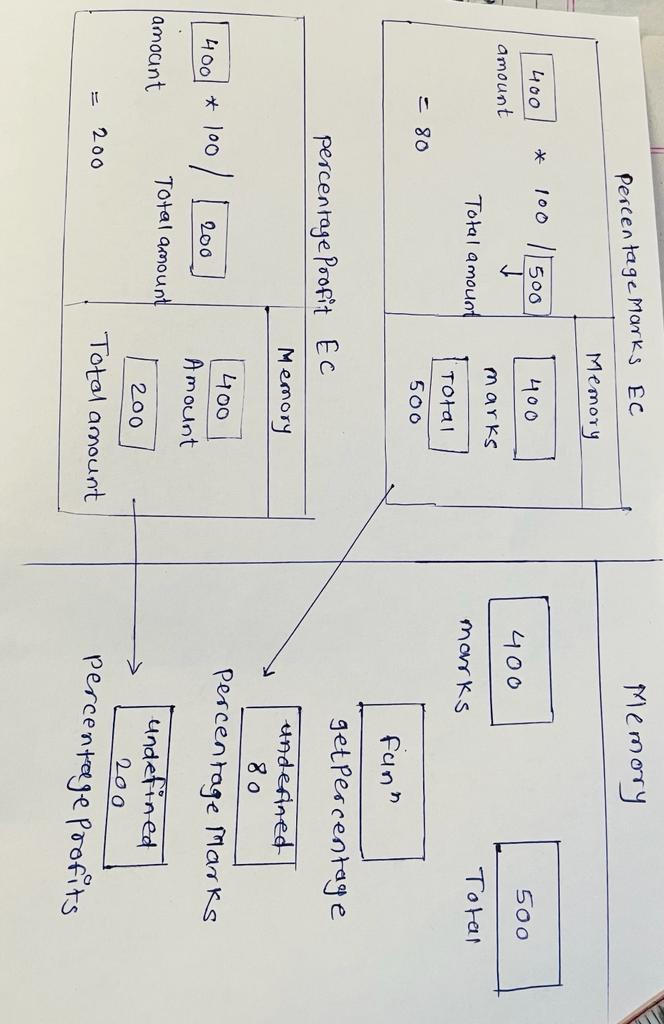 PercentageMarks EC
Memory
400 * 100 / 500
amount
Total amount
= 80
400
marks
Total
500
percentageProfit EC
Memory
400 * 100 / 200
amount
Total amount
= 200
400
Amount
200
Total amount
Memory
400
marks
500
Total
funⁿ
getPercentage
underined
80
Percentage Marks
undefined
200
percentageProfits